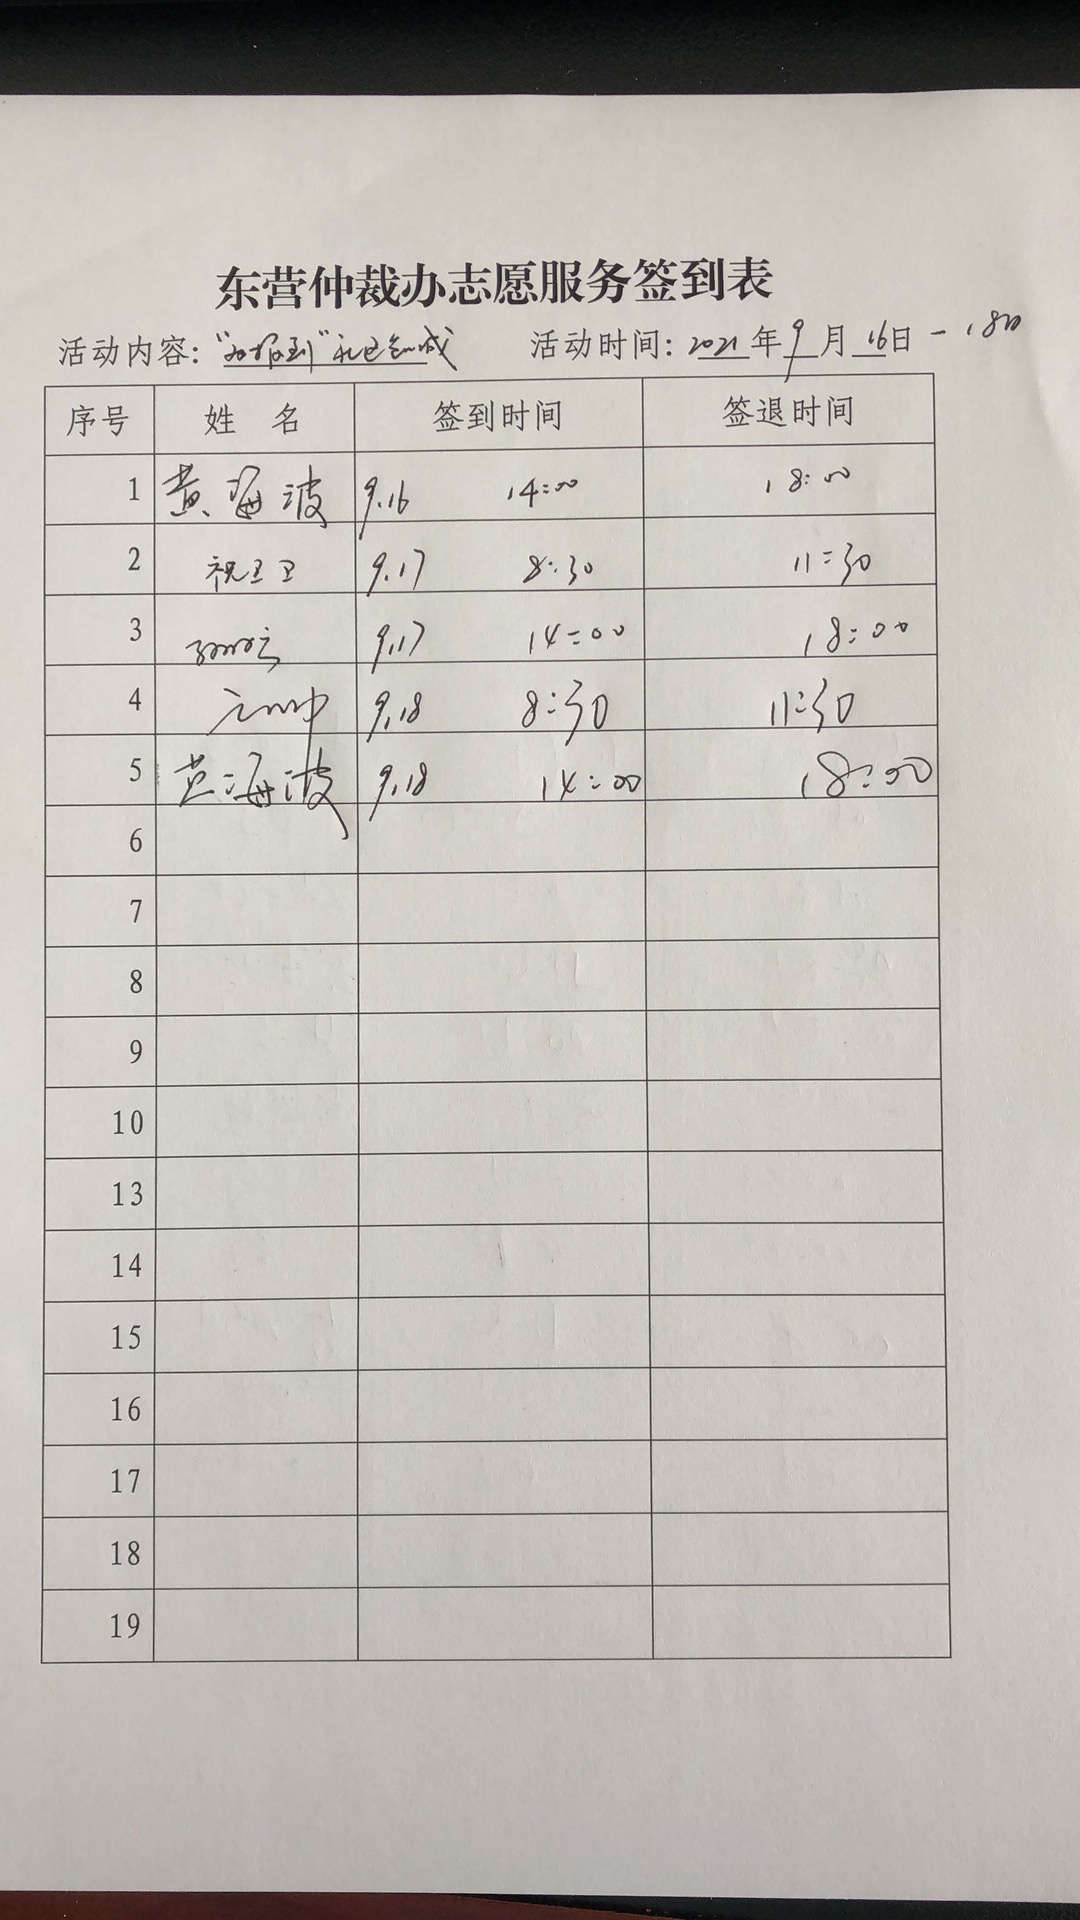 东营仲裁办志愿服务签到表
活动内容：“双报到” 活动时间：2021年9月16日－18日
序号 姓 名 签到时间 签退时间
1 黄海波 9.16 14:00 18:00
2 祝卫卫 9.17 8:30 11:30
3 9.17 14:00 18:00
4 9.18 8:30 11:30
5 黄海波 9.18 14:00 18:00
6
7
8
9
10
13
14
15
16
17
18
19